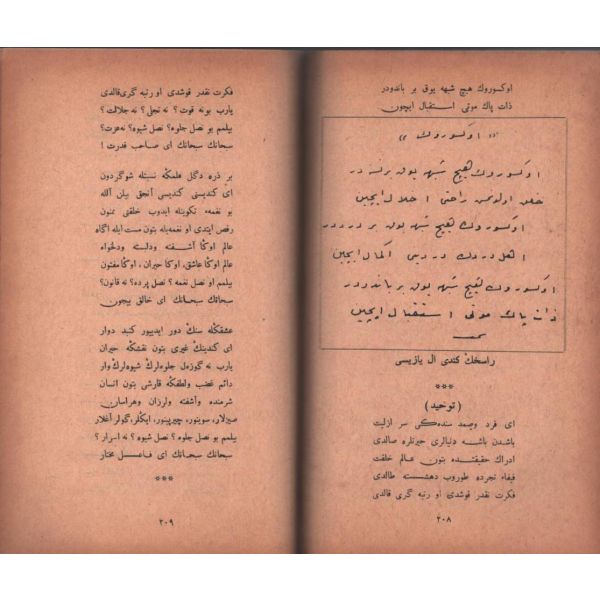 اوكسورون هيچ شبهه يوق بر باندودر
ذات پاك موتى استقبال ايچون
« اوكسورون »
اوكسورون هيچ شبهه يوق بر
اوكسورون هيچ شبهه يوق بر دردر
اهل دردك دردينى اكمال ايچون
اوكسورون هيچ شبهه يوق بر باندودر
ذات پاك موتى استقبال ايچون
راسخك كندى ال يازيسى
***
(توحيد)
اى فرد وصمد سنده كى سر ازليت
باشدن باشه دنيالرى حيرتلره صالدى
ادراك حقيقتده بتون عالم خلقت
فيفاء تجرده طوروب دهشته طالدى
فكرت نقدر قوشدى او رتبه گرى قالدى
٢٠٨
فكرت نقدر قوشدى او رتبه گرى قالدى
يارب بو نه قوت؟ نه تجلى؟ نه جلالت؟
بيلمم بو نصل جلوه؟ نصل شيوه؟ نه عزت؟
سبحانك سبحانك اى صاحب قدرت!
بر ذره دگل علمكه نسبتله شو گردون
اى كنديسنى كنديسى آنجق بيلن الله
بو نغمهء تكوينله ايدوب خلقى ممنون
رقص ايتدى او نغمه يله بتون مست ايله آگاه
عالم اوكا آشفته ودلبسته ودلخواه
عالم اوكا عاشق، اوكا حيران، اوكا مفتون
بيلمم او نصل نغمه؟ نصل پرده؟ نه قانون؟
سبحانك سبحانك اى خالق بيچون
عشقكله سنك دور ايدييور گنبد دوار
اى كندينك غيرى بتون نقشكه حيران
يارب نه گوزه ل جلوه لرك شيوه لرك وار
دائم غضب ولطفكه قارشى بتون انسان
شرمنده وآشفته ولرزان وهراسان
صيزلار، سوينور، چيرپينور، ايكلر، گولر آغلار
بيلمم بو نصل جلوه؟ نصل شيوه؟ نه اسرار؟
سبحانك سبحانك اى فاعل مختار
***
٢٠٩